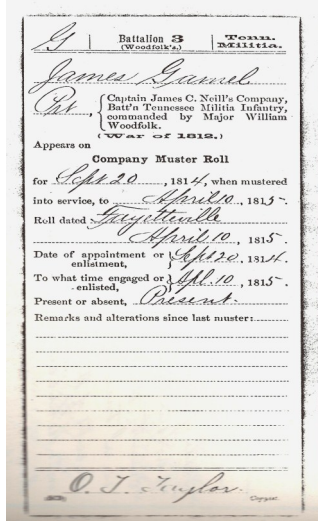 G | Battalion 3 (Woodfolk's.) | Tenn. Militia.
James Gamel
Pvt, { Captain James C. Neill's Company, Batt'n Tennessee Militia Infantry, commanded by Major William Woodfolk.
(War of 1812.)
Appears on
Company Muster Roll
for Sept 20, 1814, when mustered
into service, to April 10, 1815.
Roll dated Fayetteville
April 10, 1815.
Date of appointment or enlistment, } Sept 20, 1814.
To what time engaged or enlisted, } Apl. 10, 1815.
Present or absent, Present.
Remarks and alterations since last muster:
O. T. Taylor.
Copyist.